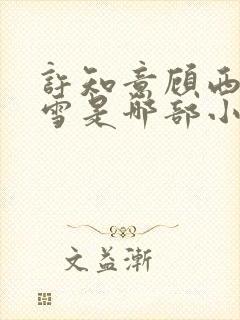 許知意顾西
雪是哪部小
文益渐